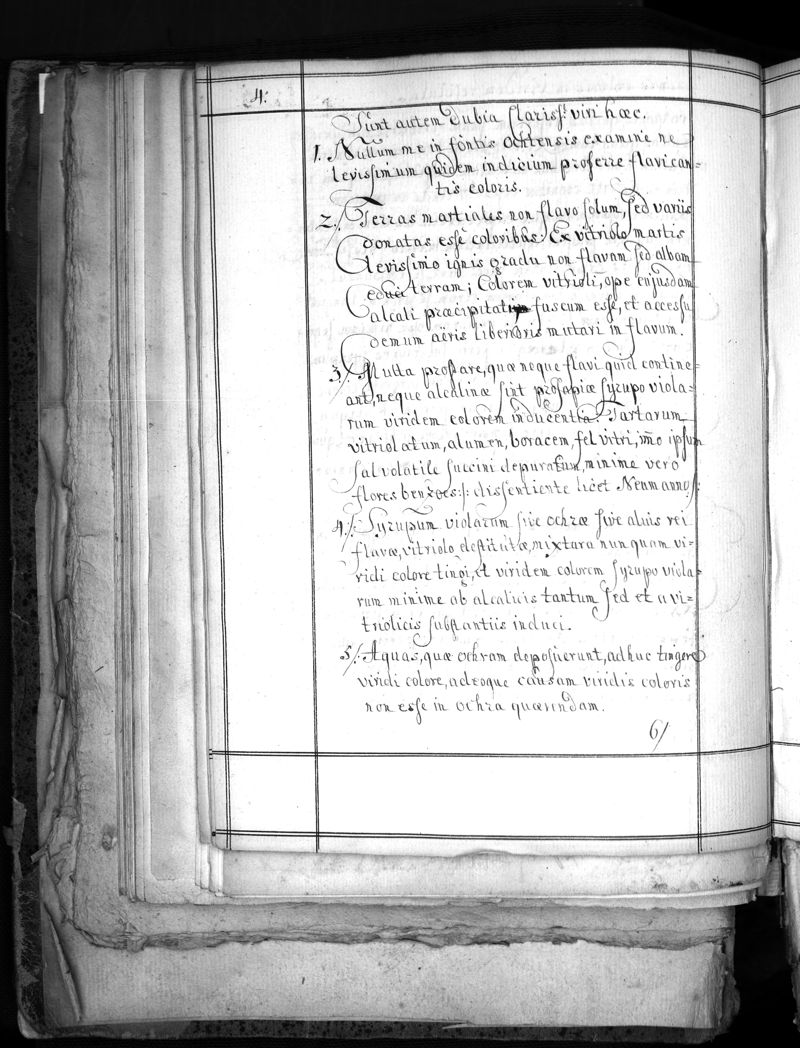 4.
Sunt autem dubia clariss: viri haec.
1. Nullum me in fontis Ochtensis examine ne
levissimum quidem indicium proferre flavican=
tis coloris.
2/. Terras martiales non flavo solum, sed variis
donatas esse coloribus: Ex vitriolo martis
levissimo ignis gradu non flavam sed albam
educi terram; Colorem vitrioli, ope cujusdam
alcali praecipitati, fuscum esse, et accessu
demum aëris liberioris mutari in flavum.
3/. Multa prostare, quae neque flavi quid contine=
ant, neque alcalinae sint prosapiae syrupo viola=
rum viridem colorem inducentia. Tartarum
vitriolatum, alumen, boracem, fel vitri, imo ipsum
sal volatile succini depuratum, minime vero
flores benzoes :/: dissentiente licet Neumanno :/:
4/. Syrupum violarum sive ochrae sive alius rei
flavae, vitriolo destitutae, mixtura nunquam vi=
ridi colore tingi, et viridem colorem syrupo viola=
rum minime ab alcalicis tantum sed et a vi=
triolicis substantiis induci.
5/. Aquas, quae ochram deposuerunt, adhuc tingere
viridi colore, adeoque causam viridis coloris
non esse in ochra quaerendam.
6/